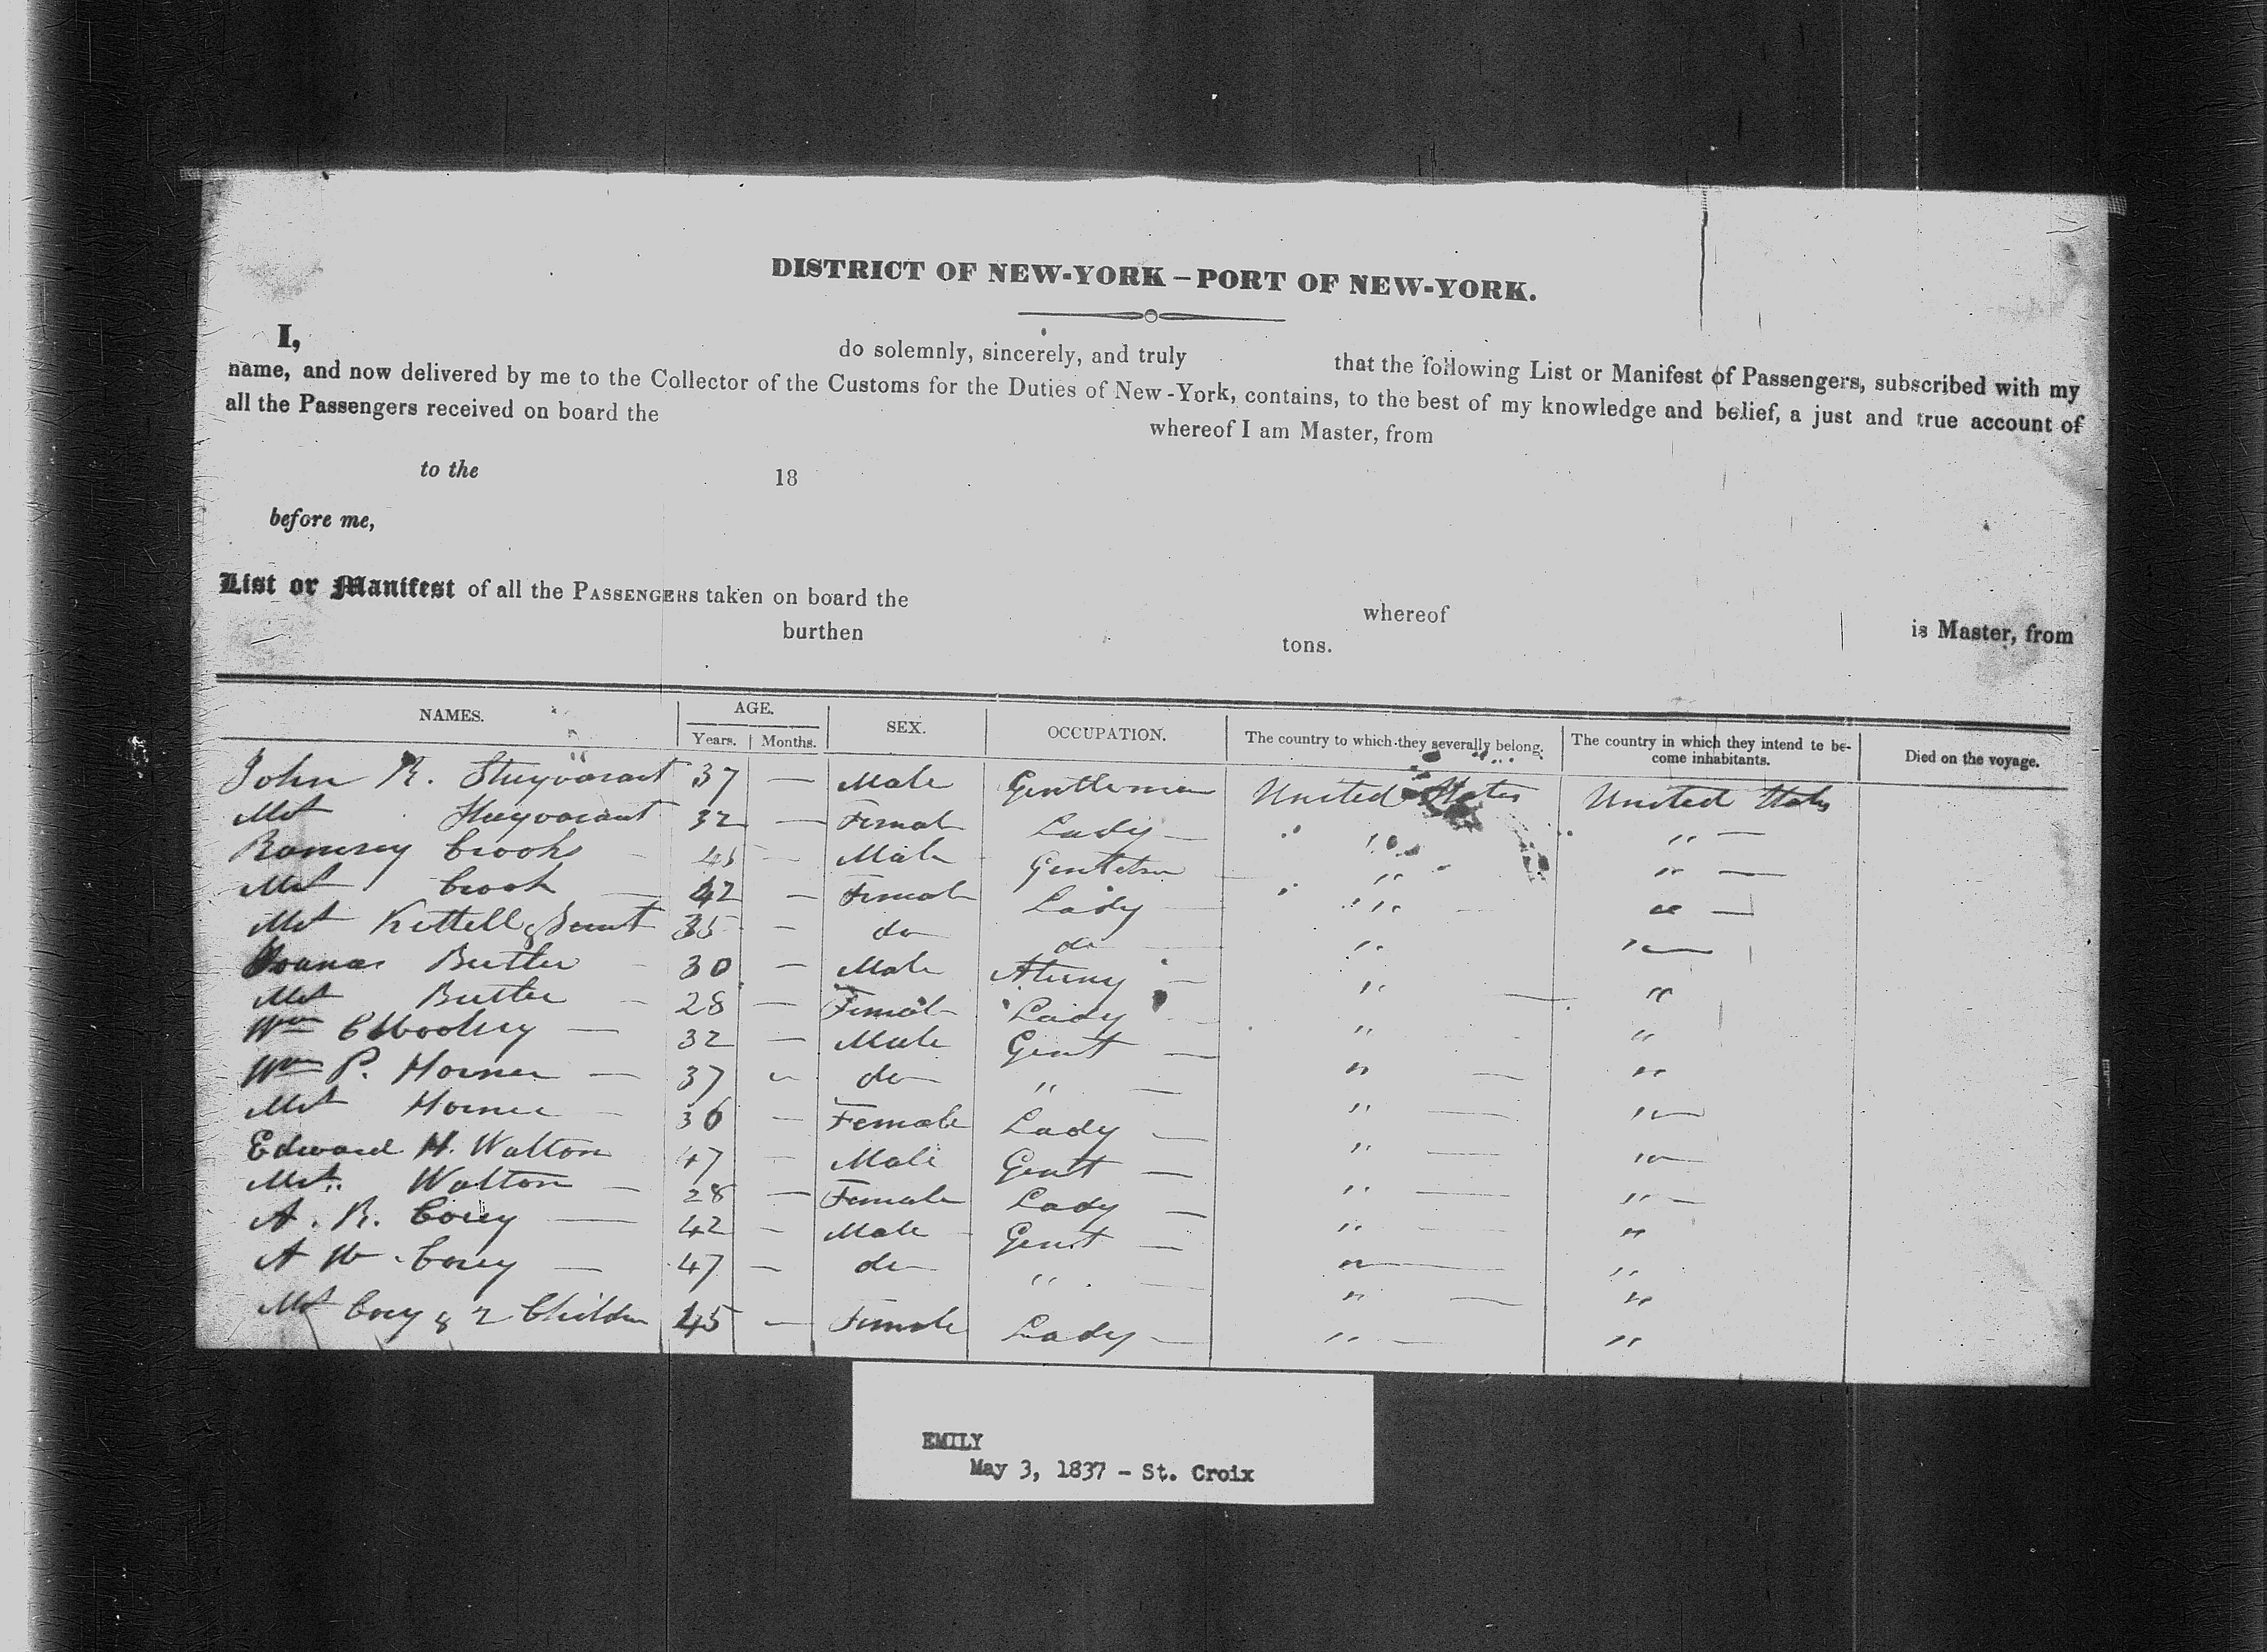 DISTRICT OF NEW-YORK – PORT OF NEW-YORK.
I, do solemnly, sincerely, and truly that the following List or Manifest of Passengers, subscribed with my
name, and now delivered by me to the Collector of the Customs for the Duties of New-York, contains, to the best of my knowledge and belief, a just and true account of
all the Passengers received on board the whereof I am Master, from
to the 18
before me,
List or Manifest of all the PASSENGERS taken on board the whereof is Master, from
burthen tons.
NAMES. AGE. SEX. OCCUPATION. The country to which they severally belong. The country in which they intend to be-
come inhabitants. Died on the voyage.
Years. Months.
John R. Stuyvasant 37 — Male Gentleman United States United States
Mrs Stuyvasant 32 — Female Lady — " " —
Ramsey Crooks — — Male " " —
Mrs Crook — 42 — Female Lady — " " —
Mrs Kettell & Servt 35 — do do — " " —
Butler — 30 — Male — " "
Mrs Butler — 28 — Female Lady — " "
Wm C Woolsey — 32 — Male Gent — " "
Wm P. Horner — 37 — do " — " — "
Mrs Horner — 36 — Female Lady — " — " —
Edward H. Walton 47 — Male Gent — " — " —
Mrs. Walton — 28 — Female Lady — " — " —
A. R. Corey — 42 — Male Gent — " — "
A W. Corey — 47 — do " — " — "
Mrs Cory & 2 Children 45 — Female Lady — " — "
EMILY
May 3, 1837 - St. Croix